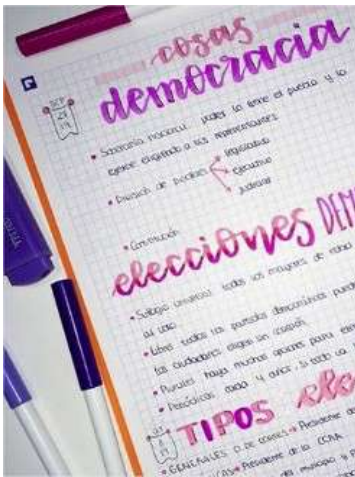 cosas
democracia
SEP
• Soberanía nacional: poder lo tiene el pueblo y lo
ejerce eligiendo a sus representantes
• División de poderes legislativo
ejecutivo
judicial
• Constitución
elecciones DEM
• Sufragio universal: todos los mayores de edad
al voto
• Libres todos los partidos democráticos pued
los ciudadanos eligen sin coacción
• Plurales haya muchas opciones para
• Periódicas cada 4 años, si
TIPOS ele
• GENERALES o de cortes → Presidente
→ Presidente de la CCAA
del municipio y p